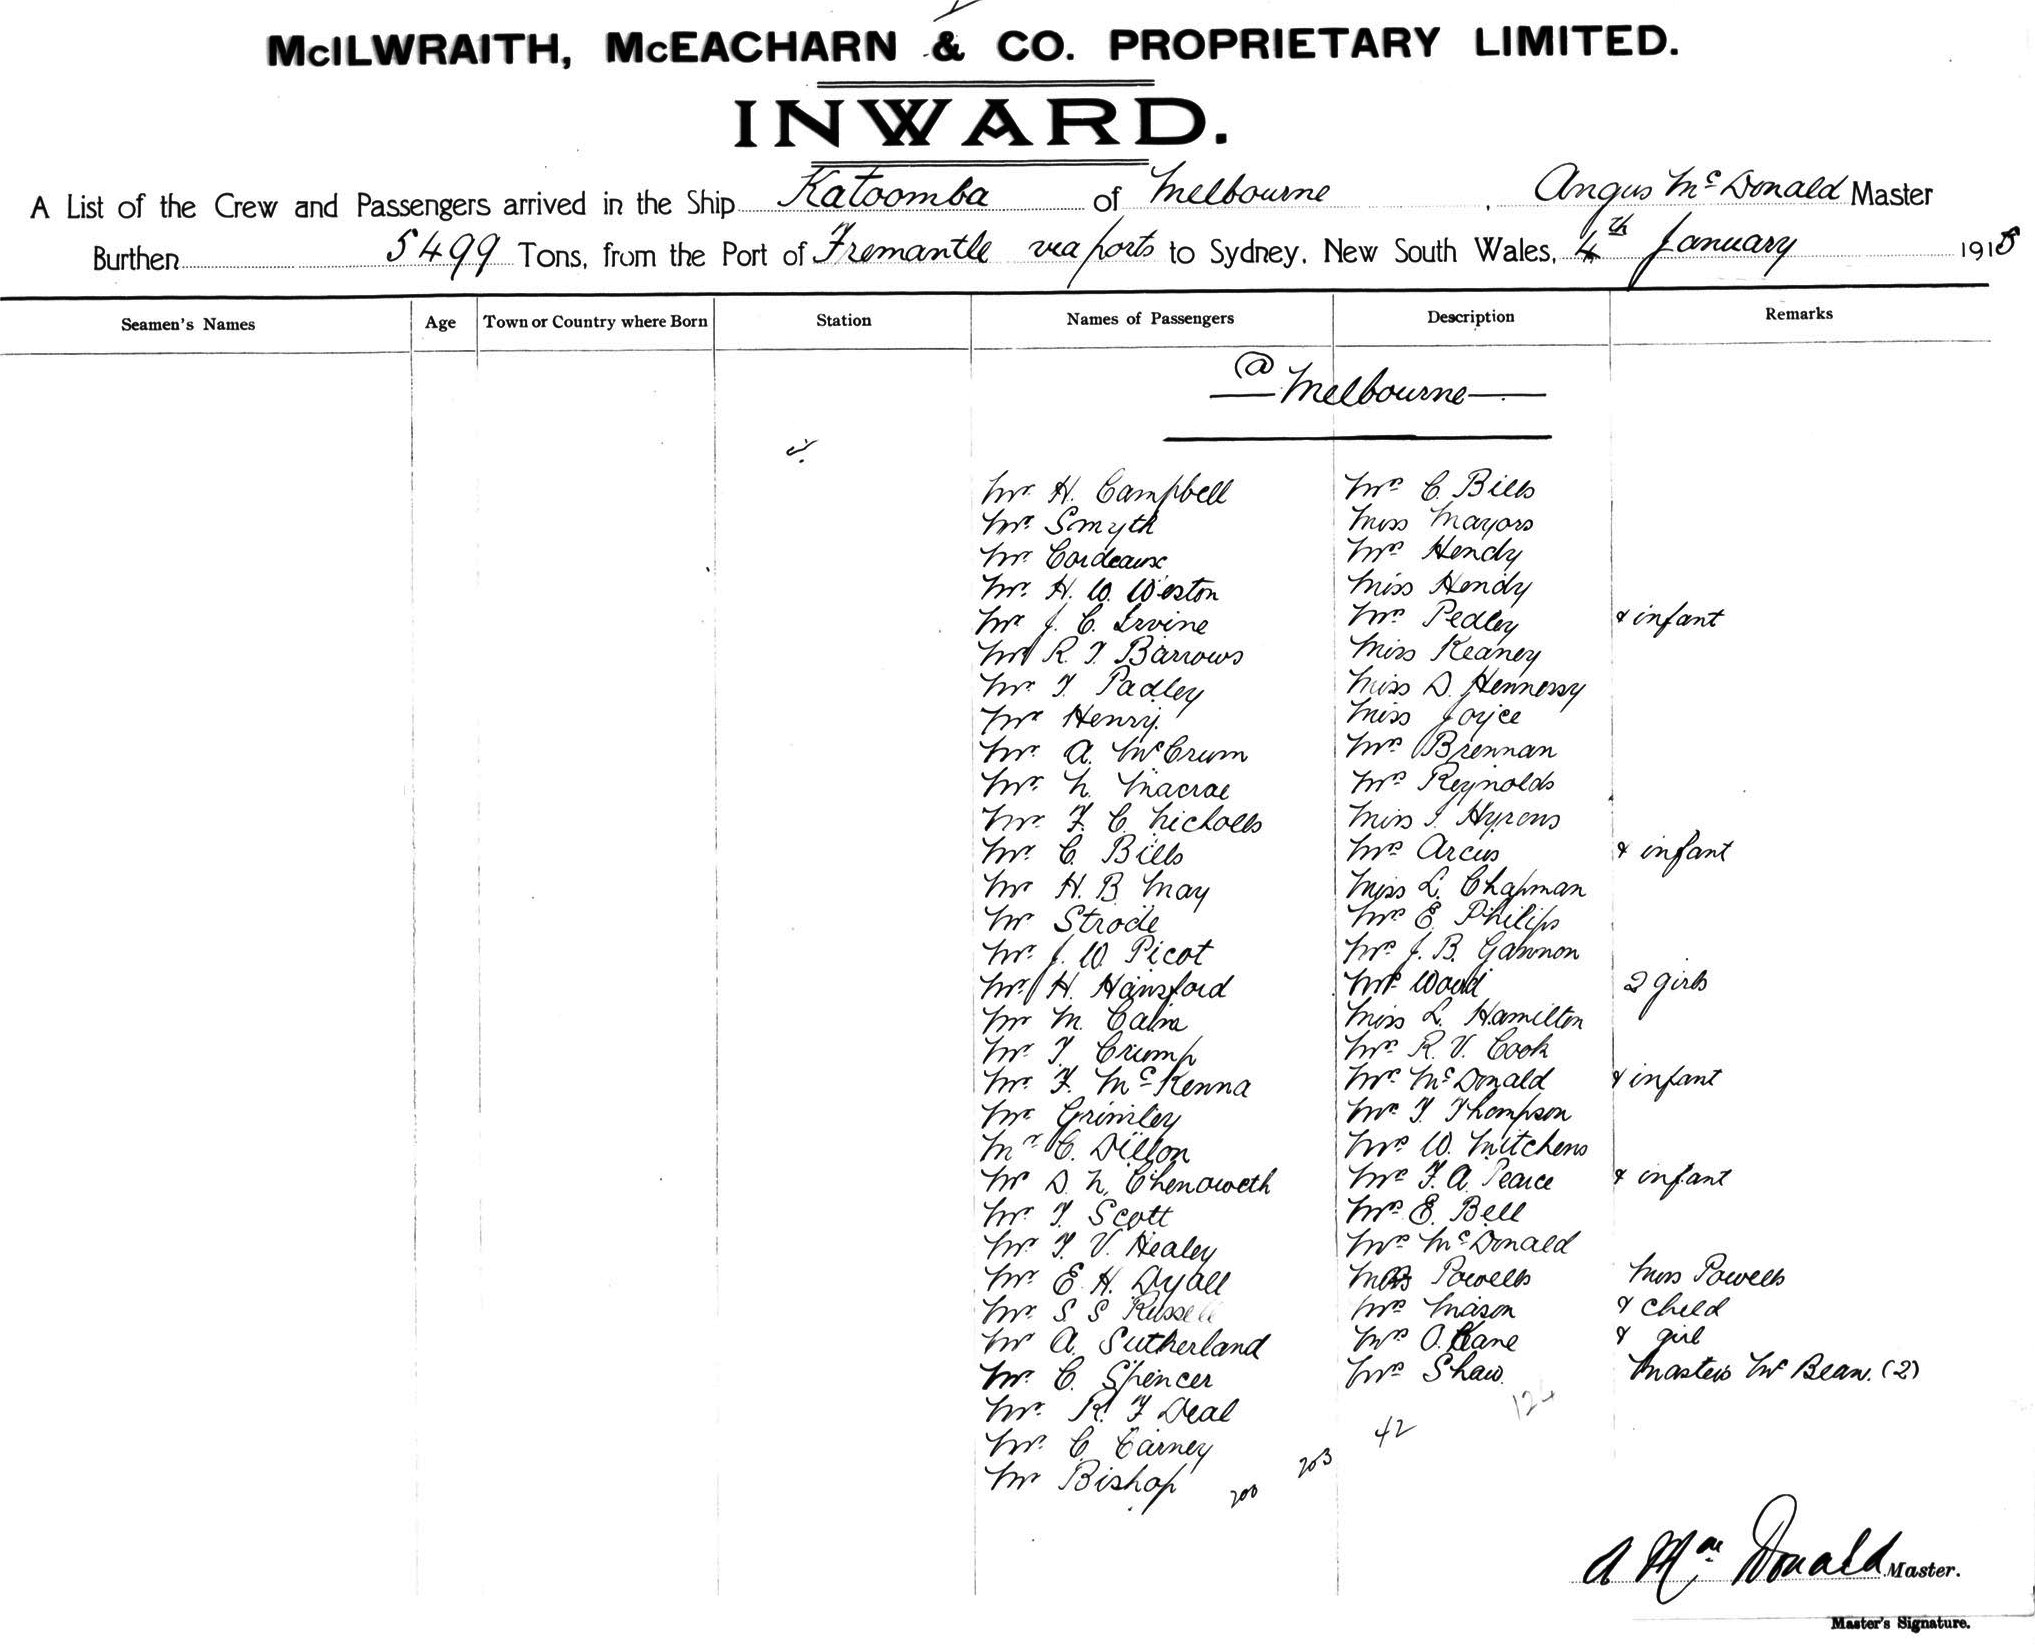 McILWRAITH, McEACHARN & CO. PROPRIETARY LIMITED.
INWARD.
A List of the Crew and Passengers arrived in the Ship Katoomba of Melbourne, Angus McDonald Master
Burthen 5499 Tons, from the Port of Fremantle via ports to Sydney, New South Wales, 4th January 1915
Seamen's Names Age Town or Country where Born Station Names of Passengers Description Remarks
@ Melbourne
Mr. H. Campbell Mrs C. Bills
Mr. Smyth Miss Mayors
Mr. Cordeaux Mrs Hendy
Mr. H. W. Weston Miss Hendy
Mr J. C. Irvine Mrs Pedley & infant
Mr R. T. Barrows Miss Keaney
Mr. T. Padley Miss D. Hennessy
Mr Henry. Miss Joyce
Mr. A. McCrum Mrs Brennan
Mr. N. Macrae Mrs Reynolds
Mr. F. C. Nicholls Miss I. Hyrons
Mr. C. Bills Mrs Arcus & infant
Mr H. B. May Miss L. Chapman
Mr Strode Mrs E. Philips
Mr. J. W. Picot Mrs J. B. Gannon
Mr. H. Hansford Mrs Wood 2 girls
Mr M. Cain Miss L. Hamilton
Mr. T. Crump Mrs R. V. Cook
Mr. F. McKenna Mrs McDonald & infant
Mr. Grimley Mrs T. Thompson
Mr C. Dillon Mrs W. Mitchens
Mr D. N. Chenoweth Mrs F. A. Pearce & infant
Mr. T. Scott Mrs E. Bell
Mr. T. V. Healey Mrs McDonald
Mr. E. H. Dyall Powells Miss Powells
Mr. S S Russell Mrs Mason & child
Mr A. Sutherland Mrs O.Kane & girl
Mr. C. Spencer Mrs Shaw. Masters McBean. (2)
Mr. R. F Deal
Mr. C. Carney 42
Mr Bishop 200 203
A MacDonald Master.
Master's Signature.